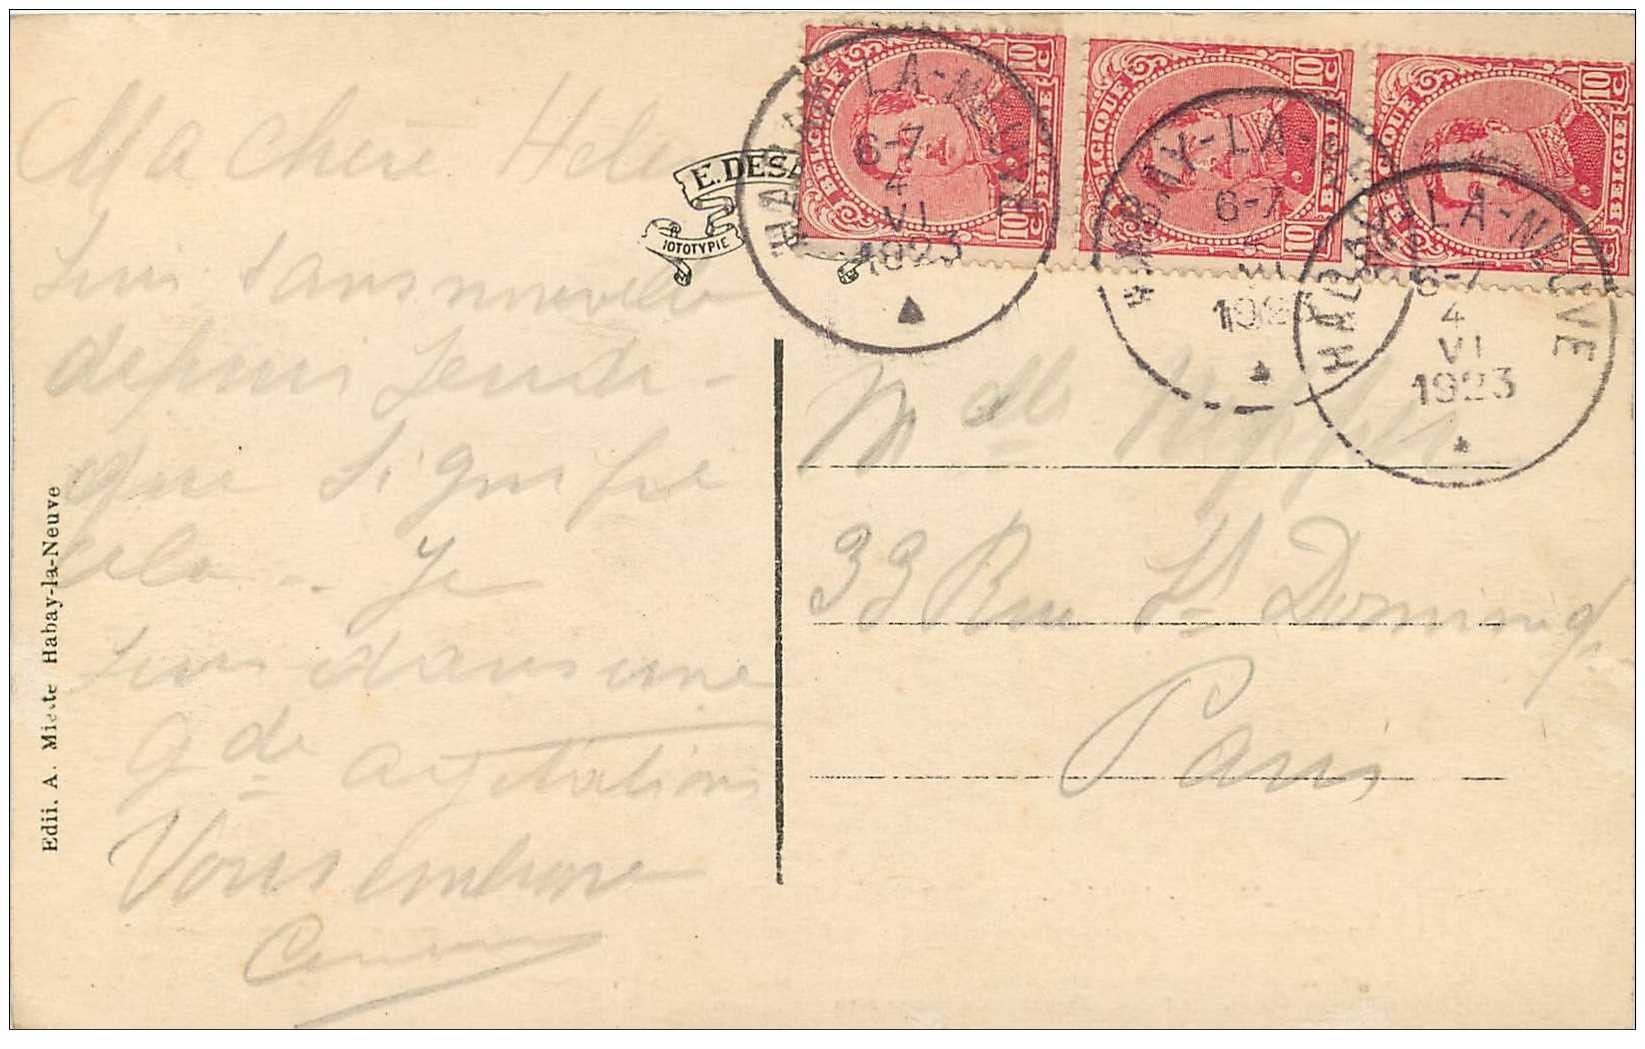 Ma chère Helen
suis sans nouvelle
depuis
que signifie
cela .. Je
suis dans une
gde agitations
Vous embrasse
E. DESA
IOTOTYPIE
Edit. A. Miette Habay-la-Neuve
BELGIQUE 10c BELGIE 10c
BELGIQUE 10c BELGIE 10c
BELGIQUE 10c BELGIE 10c
HABAY-LA-NEUVE
6-7
4
VI
1923
HABAY-LA-NE
6-7
VI
1923
HABAY-LA-NEUVE
6-7
4
VI
1923
Mdlle
33 Rue St Doming
Paris